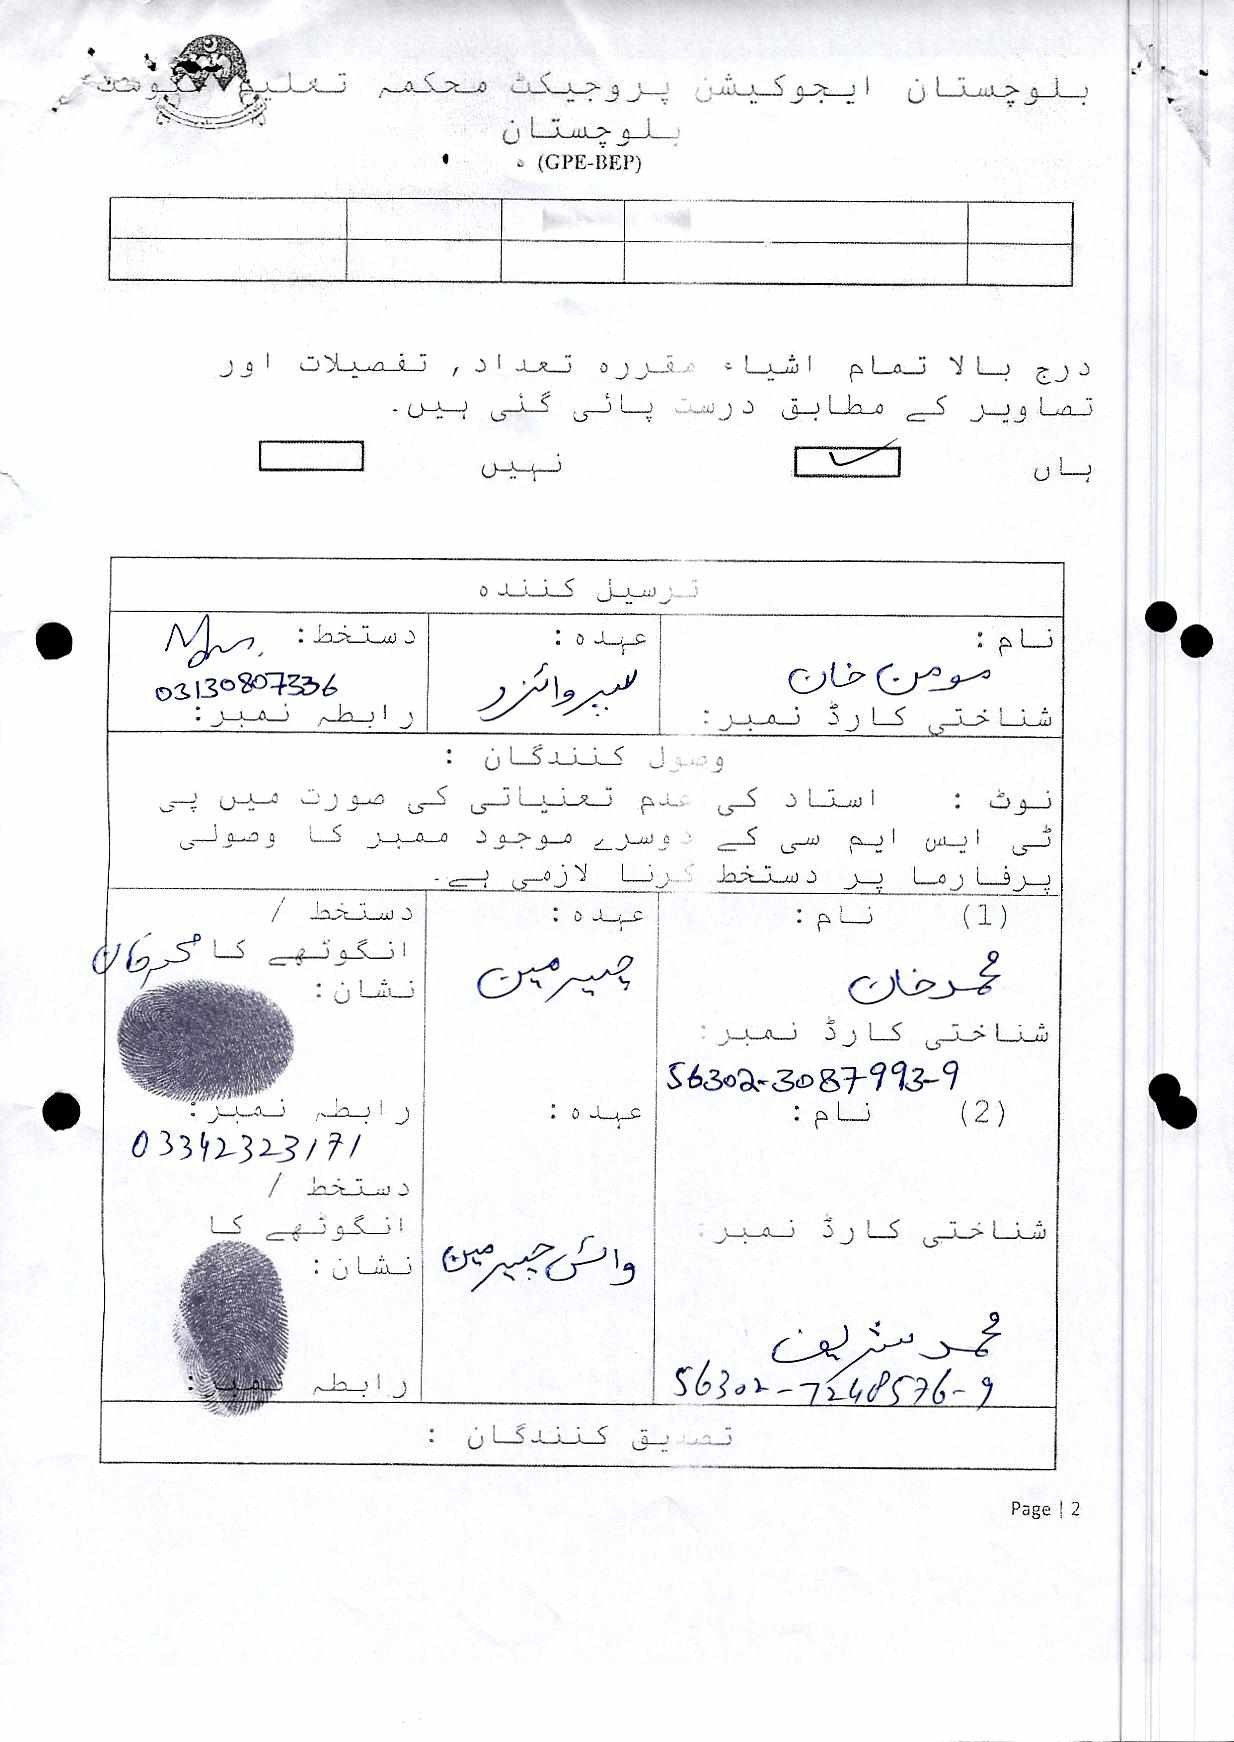 بلوچستان ایجوکیشن پروجیکٹ محکمہ تعلیم حکومت
بلوچستان
(GPE-BEP)
درج بالا تمام اشیاء مقررہ تعداد, تفصیلات اور
تصاویر کے مطابق درست پائی گئی ہیں۔
ہاں نہیں
ترسیل کنندہ
نام: عہدہ: دستخط:
مومن خان سپروائزر 03130807336
شناختی کارڈ نمبر: رابطہ نمبر:
وصول کنندگان :
نوٹ : استاد کی عدم تعنیاتی کی صورت میں پی
ٹی ایس ایم سی کے دوسرے موجود ممبر کا وصولی
پرفارما پر دستخط کرنا لازمی ہے۔
(1) نام: عہدہ: دستخط /
انگوٹھے کا
محمد خان چیرمین نشان:
شناختی کارڈ نمبر:
56302-3087993-9
(2) نام: عہدہ: رابطہ نمبر:
03342323171
دستخط /
شناختی کارڈ نمبر: انگوٹھے کا
وائس چیرمین نشان:
محمد شریف
56302-7248576-9 رابطہ نمبر:
تصدیق کنندگان :
Page | 2